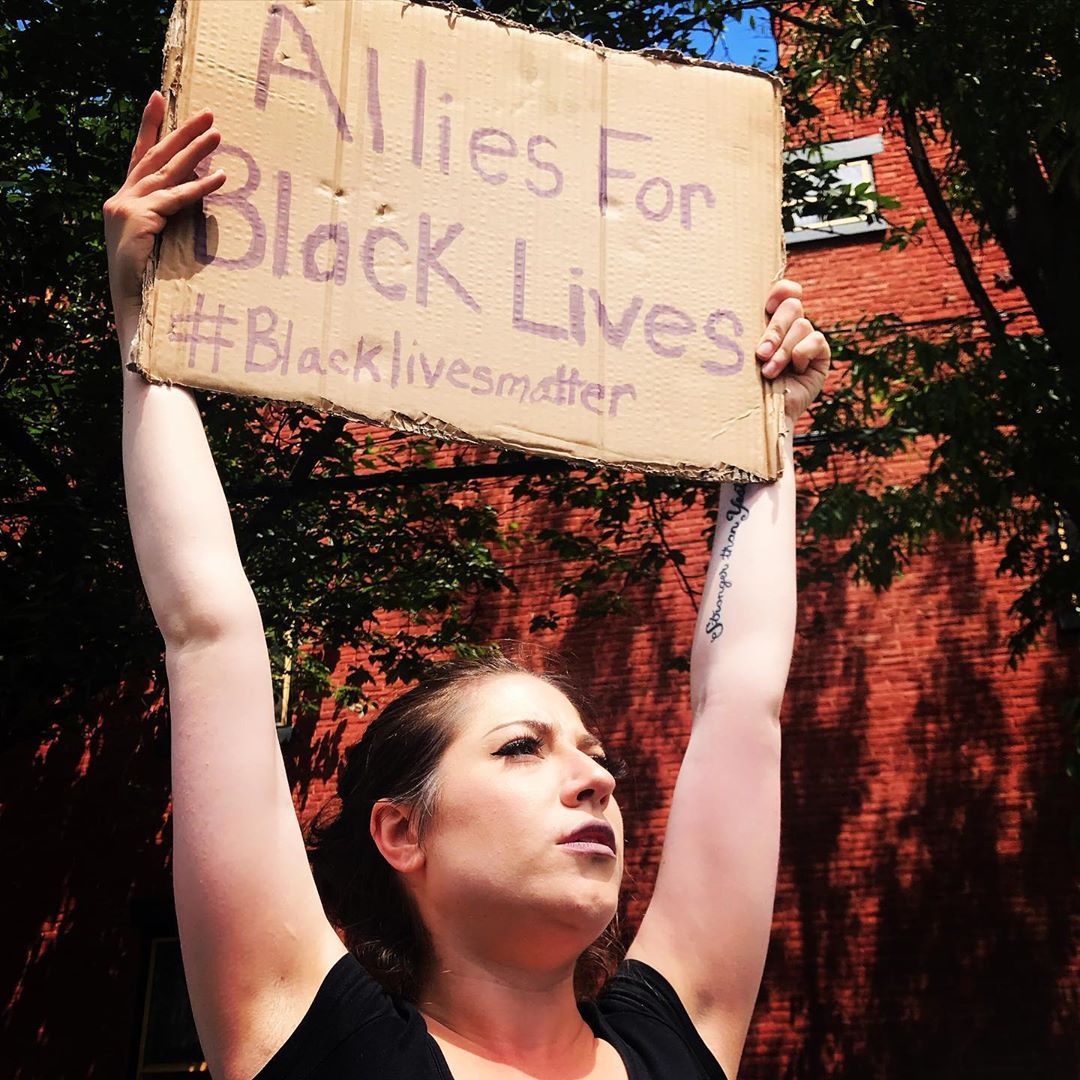 Allies For
Black Lives
#Blacklivesmatter
Stronger than